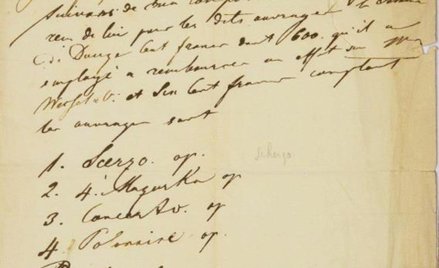 suivans de
reçu de lui pour les dits ouvrages la somme
C à d Douze Cent francs dont 600. qu'il a
employé a rembourser un effet sur Mr
et Six Cent francs comptant
les ouvrages sont
1. Scerzo. op.
scherzo
2. 4. Magurka op
3. Concerto. op
4. Polonaise op.